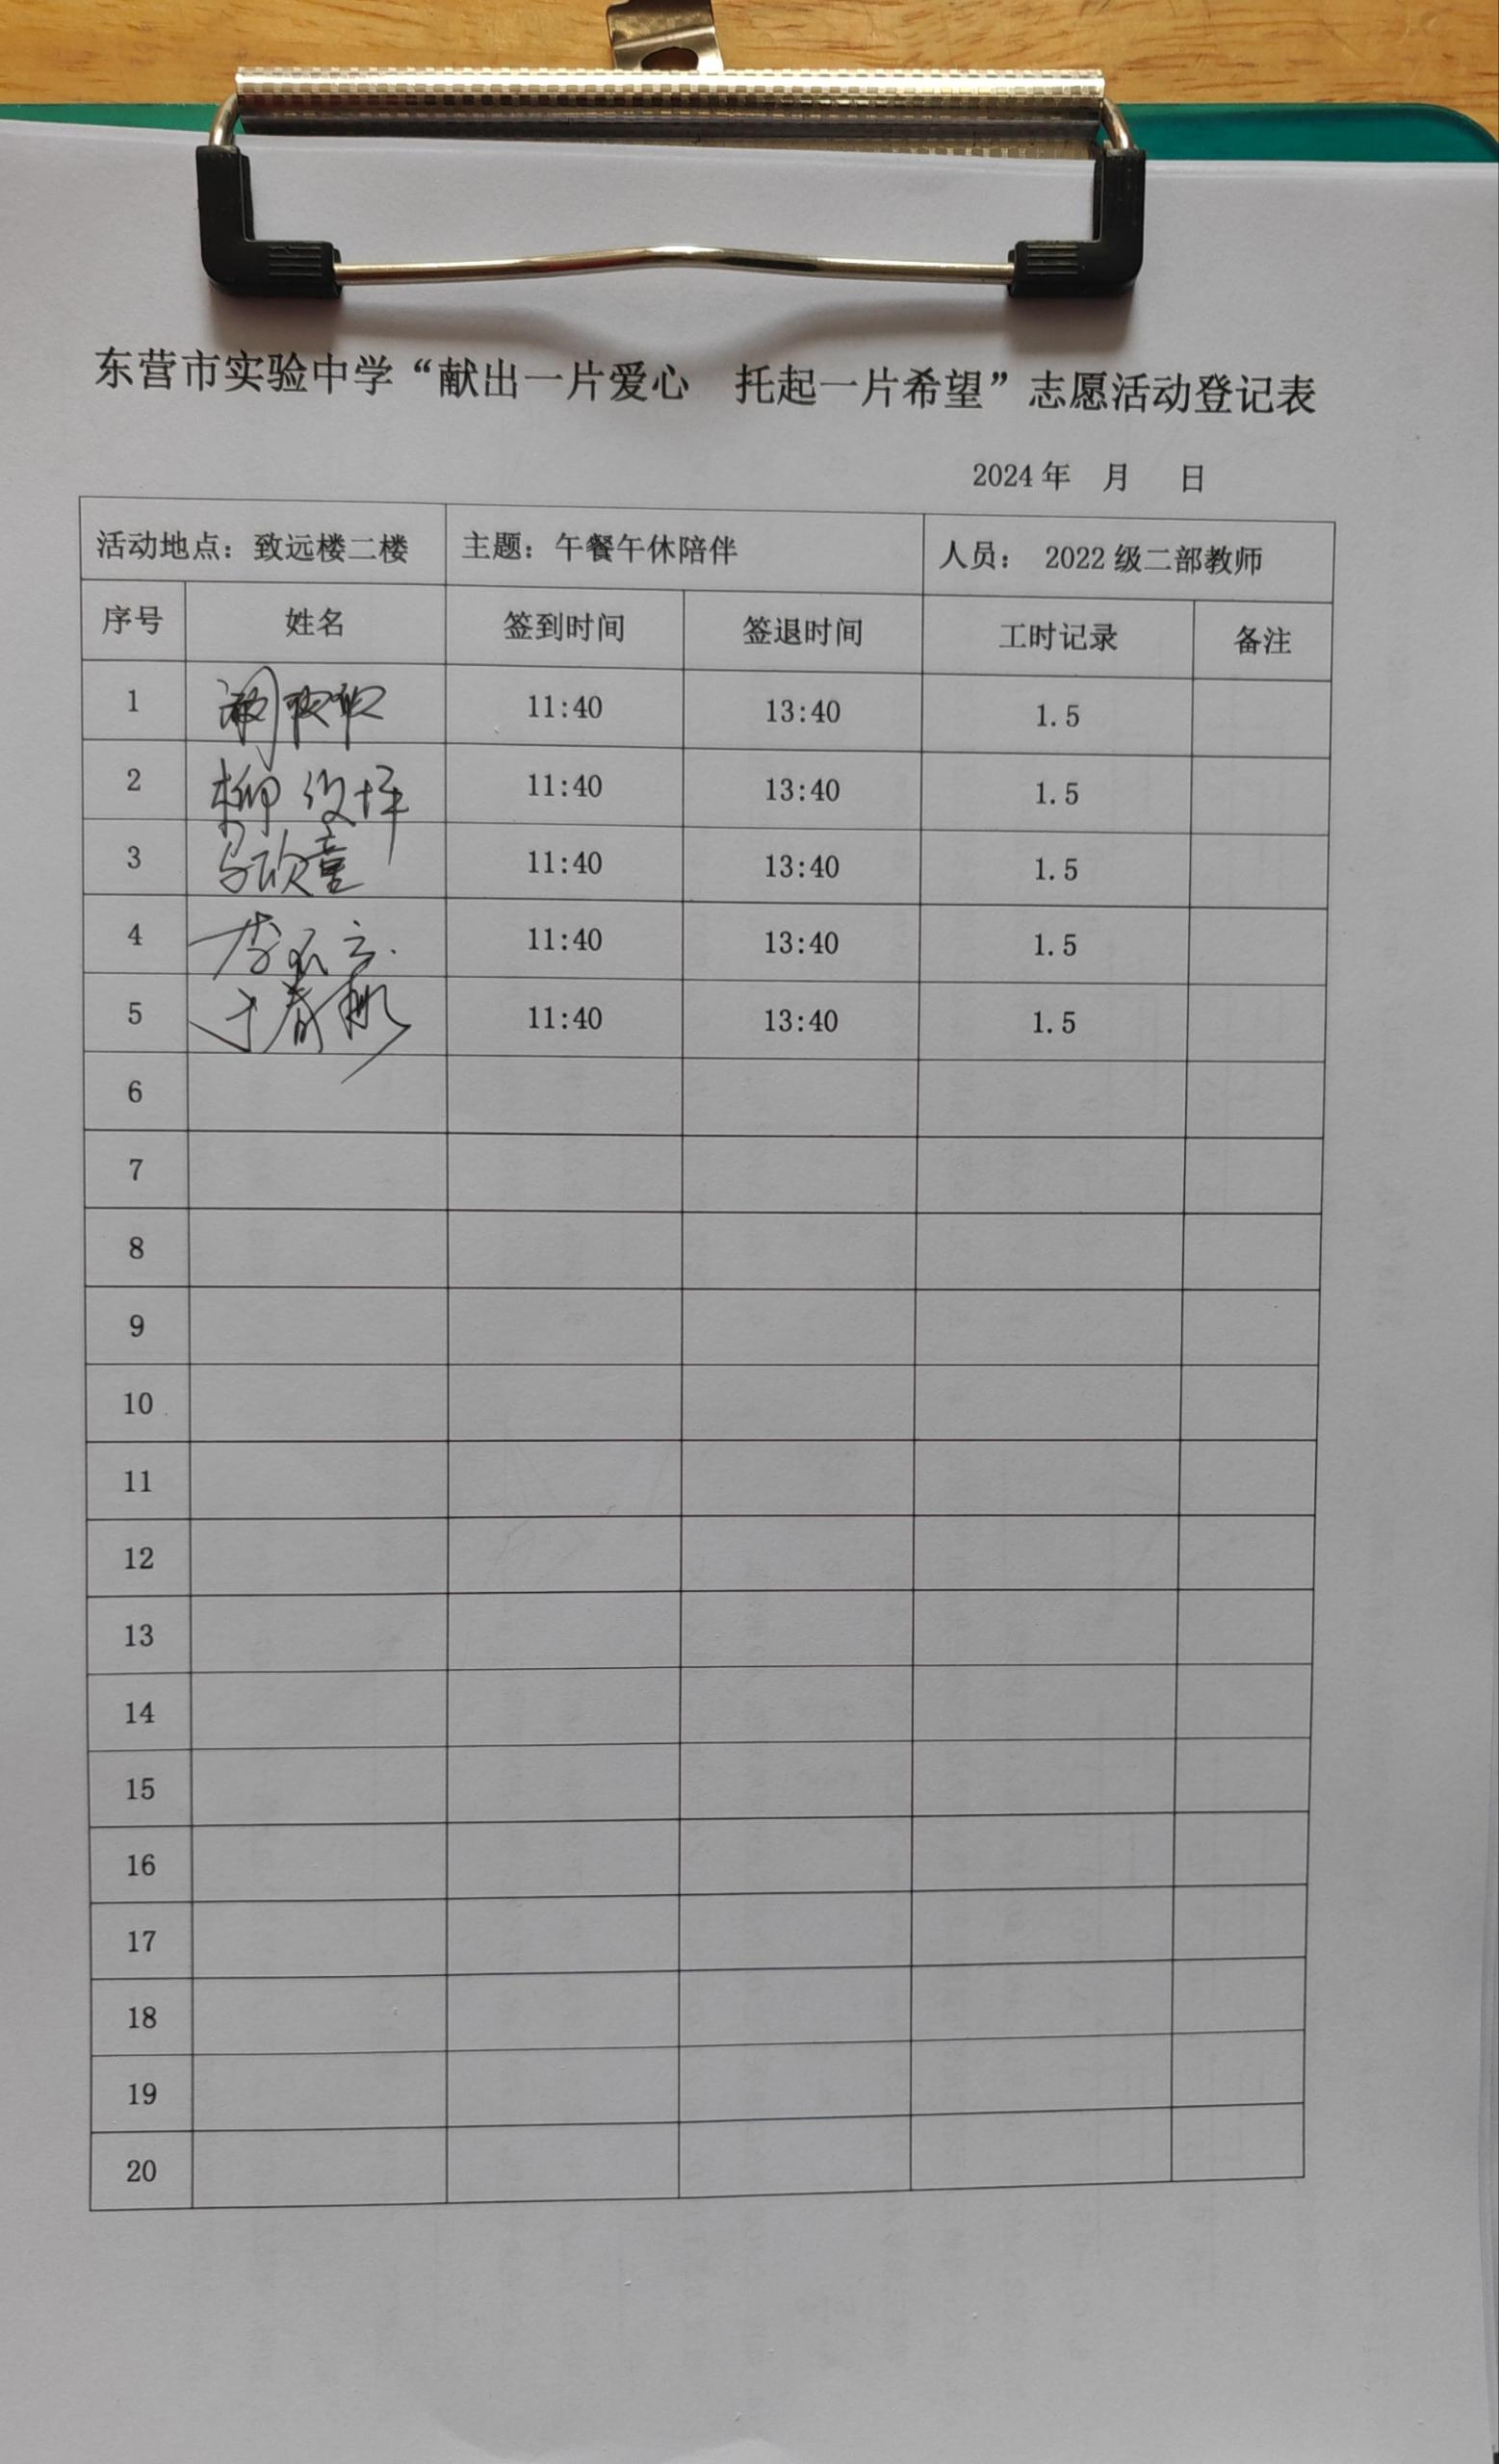 东营市实验中学“献出一片爱心 托起一片希望”志愿活动登记表
2024年 月 日
活动地点：致远楼二楼 主题：午餐午休陪伴 人员： 2022级二部教师
序号 姓名 签到时间 签退时间 工时记录 备注
1 11:40 13:40 1.5
2 柳 11:40 13:40 1.5
3 马欣童 11:40 13:40 1.5
4 李 11:40 13:40 1.5
5 于春 11:40 13:40 1.5
6
7
8
9
10
11
12
13
14
15
16
17
18
19
20